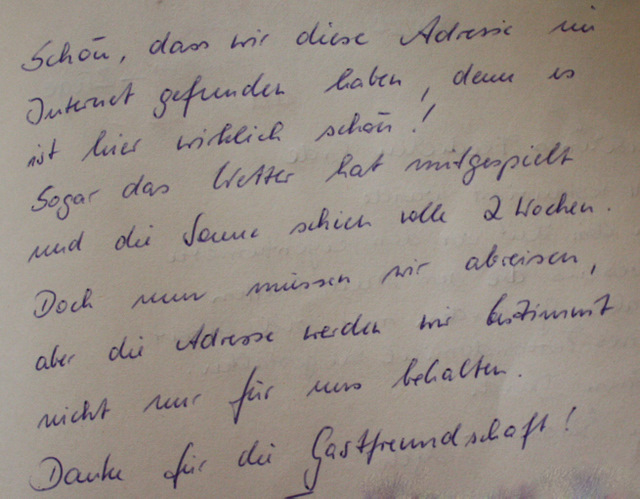 Schön, dass wir diese Adresse im
Internet gefunden haben, denn es
ist hier wirklich schön!
Sogar das Wetter hat mitgespielt
und die Sonne schien volle 2 Wochen.
Doch nun müssen wir abreisen,
aber die Adresse werden wir bestimmt
nicht nur für uns behalten.
Danke für die Gastfreundschaft!